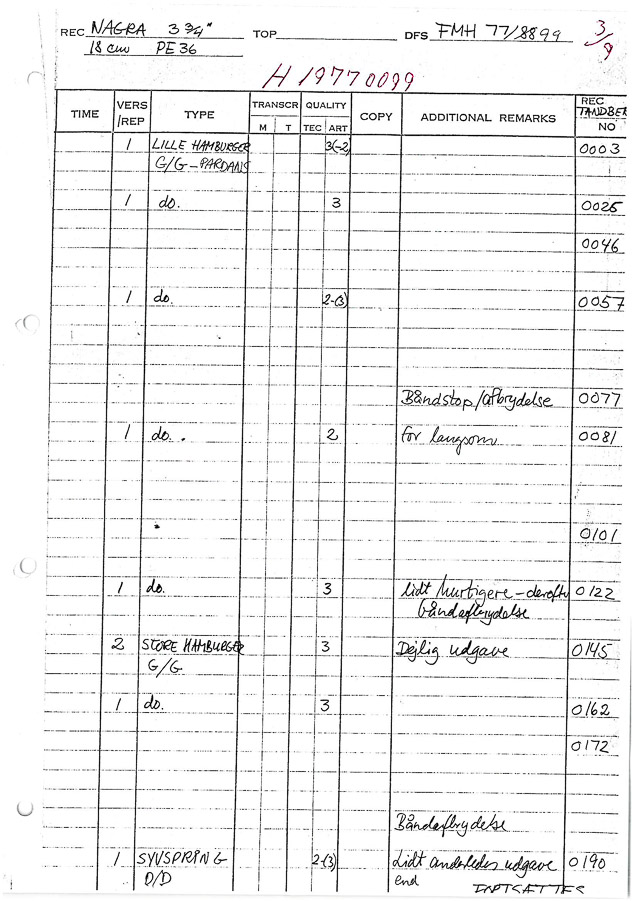 REC NAGRA 3 3/4" TOP DFS FMH 77/8899 3/9
18 cm PE 36
H 19770099
TIME VERS /REP TYPE TRANSCR M T QUALITY TEC ART COPY ADDITIONAL REMARKS REC TANDBER NO
1 LILLE HAMBURGER 3(-2) 0003
G/G - PARDANS
1 do. 3 0025
0046
1 do. 2-(3) 0057
Båndstop/afbrydelse 0077
1 do. 2 for langsom 0081
0101
1 do. 3 lidt hurtigere - derefter 0122
båndafbrydelse
2 STORE HAMBURGER 3 Dejlig udgave 0145
G/G
1 do. 3 0162
0172
Båndafbrydelse
1 SYVSPRING 2-(3) Lidt anderledes udgave 0190
D/D end